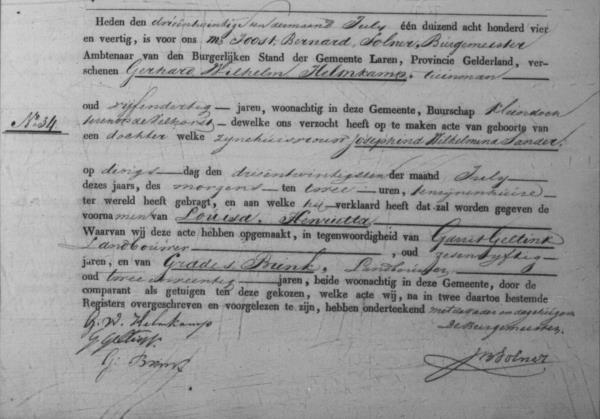 Heden den drieëntwintigsten der maand July één duizend acht honderd vier
en veertig, is voor ons Mr Joost Bernard Solner, Burgemeester
Ambtenaar van den Burgerlijken Stand der Gemeente Laren, Provincie Gelderland, ver-
schenen Gerhard Wilhelm Helmkamp, tuinman
No. 34
oud vijfendertig jaren, woonachtig in deze Gemeente, Buurschap
dewelke ons verzocht heeft op te maken acte van geboorte van
een dochter welke zijne huisvrouw Josephina Wilhelmina Sander
op dings dag den drieëntwintigsten der maand July
dezes jaars, des morgens ten twee uren, te zijnen huize
ter wereld heeft gebragt, en aan welke hij verklaard heeft dat zal worden gegeven de
voornamen van Louisa Henrietta
Waarvan wij deze acte hebben opgemaakt, in tegenwoordigheid van Garrit Geltink
Landbouwer, oud zesenvijftig
jaren, en van Grades Brink, Landbouwer,
oud tweeenveertig jaren, beide woonachtig in deze Gemeente, door de
comparant als getuigen ten deze gekozen, welke acte wij, na in twee daartoe bestemde
Registers overgeschreven en voorgelezen te zijn, hebben onderteekend met de vader en de getuigen
De Burgemeester,
G. W. Helmkamp
G Geltink
G: Brink
JB Solner